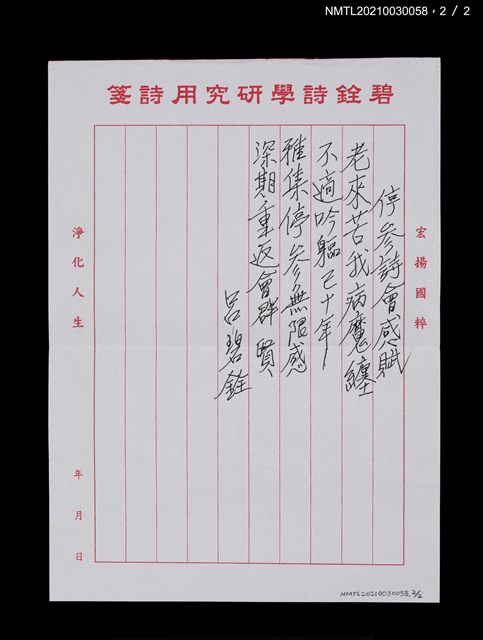 NMTL20210030058，2 / 2
碧銓詩學研究用詩箋
宏揚國粹
停參詩會感賦
老來苦我病魔纏
不適吟軀已十年
雅集停參無限感
深期重返會群賢
呂碧銓
淨化人生
年月日
NMTL20210030058, 2/2